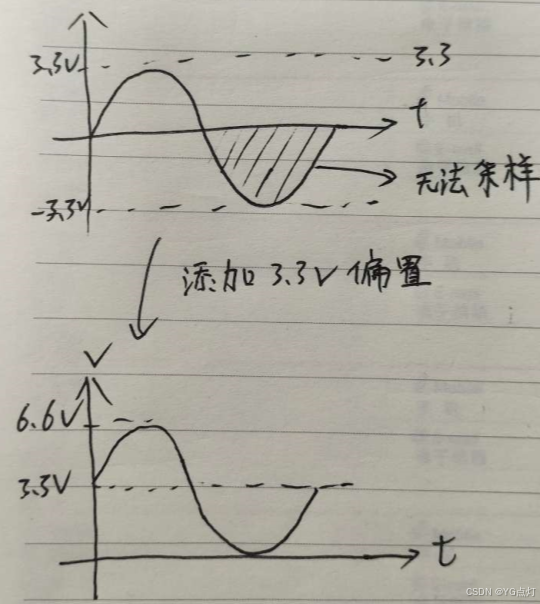 3.3V
3.3
t
无法采样
-3.3V
添加 3.3V 偏置
V
6.6V
3.3V
t
CSDN @YG点灯